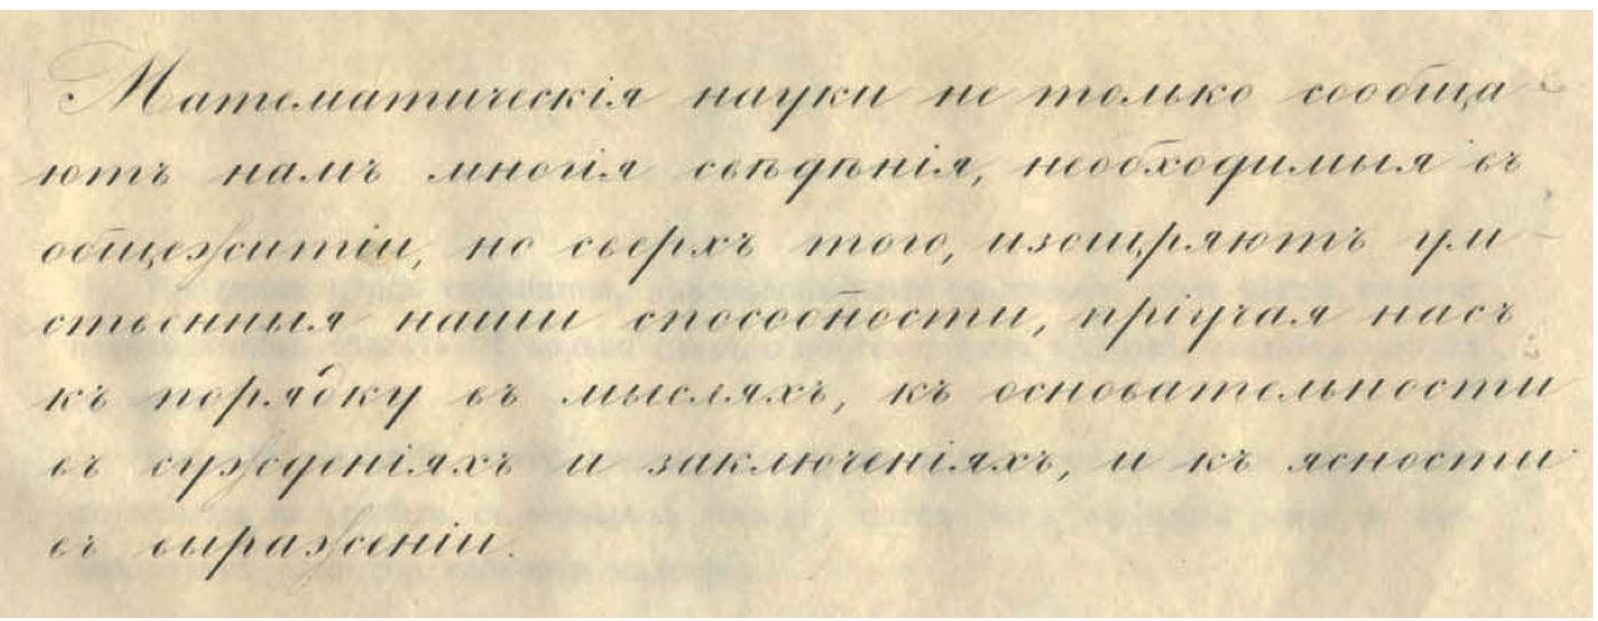 Математическія науки не только сообща
ютъ намъ многія свѣдѣнія, необходимыя въ
общежитіи, но сверхъ того, изощряютъ ум-
ственныя наши способности, пріучая насъ
къ порядку въ мысляхъ, къ основательности
въ сужденіяхъ и заключеніяхъ, и къ ясности
въ выраженіи.